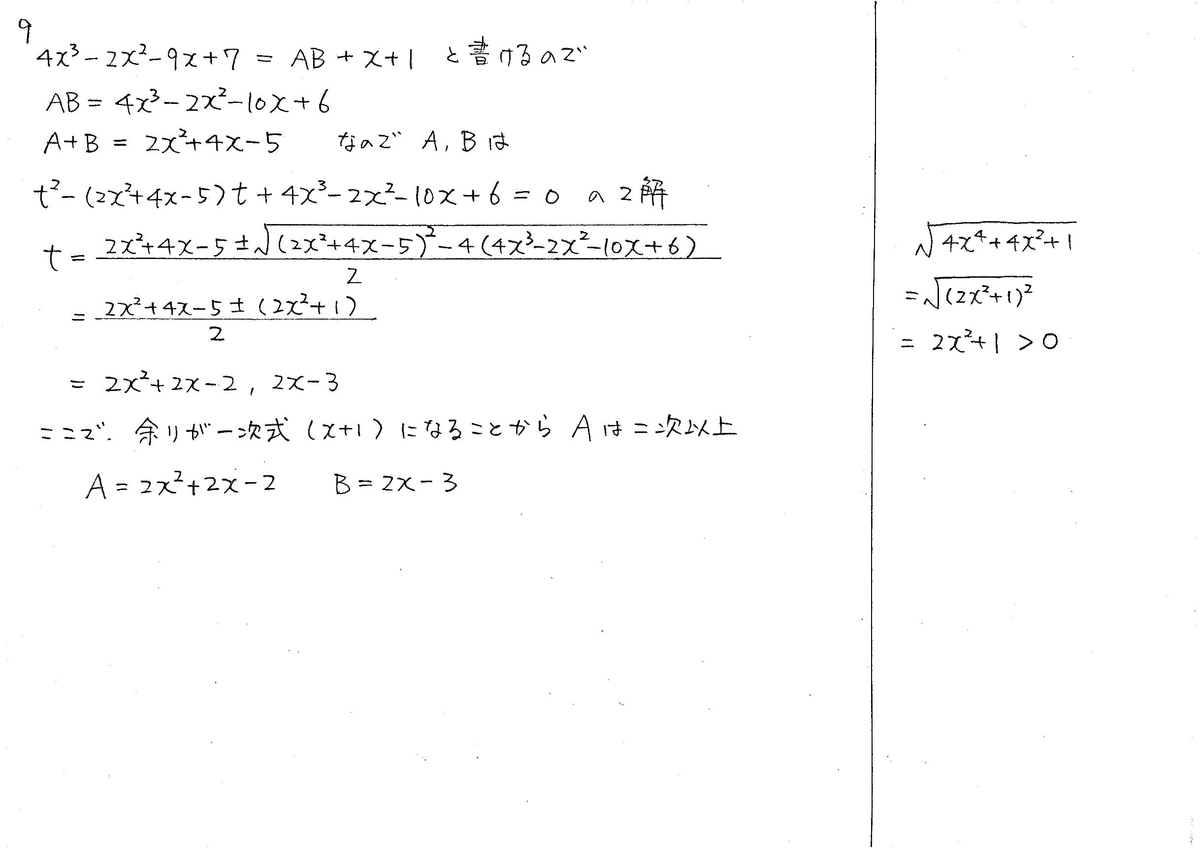 9
4x³-2x²-9x+7 = AB+x+1 と書けるので
AB = 4x³-2x²-10x+6
A+B = 2x²+4x-5 なので A, B は
t²-(2x²+4x-5)t+4x³-2x²-10x+6=0 の2解
t = (2x²+4x-5±√((2x²+4x-5)²-4(4x³-2x²-10x+6)))/2
= (2x²+4x-5±(2x²+1))/2
= 2x²+2x-2, 2x-3
ここで、余りが一次式(x+1)になることから Aは二次以上
A = 2x²+2x-2 B = 2x-3
√(4x⁴+4x²+1)
= √((2x²+1)²)
= 2x²+1 > 0